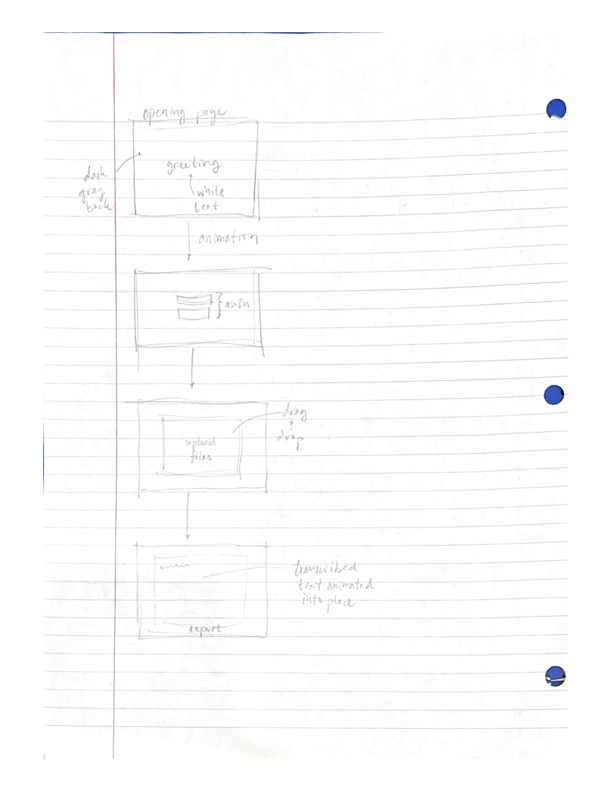 opening page
dark
gray
back
greeting
white
text
animation
auth
upload
files
drag
drop
transcribed
text animated
into place
export